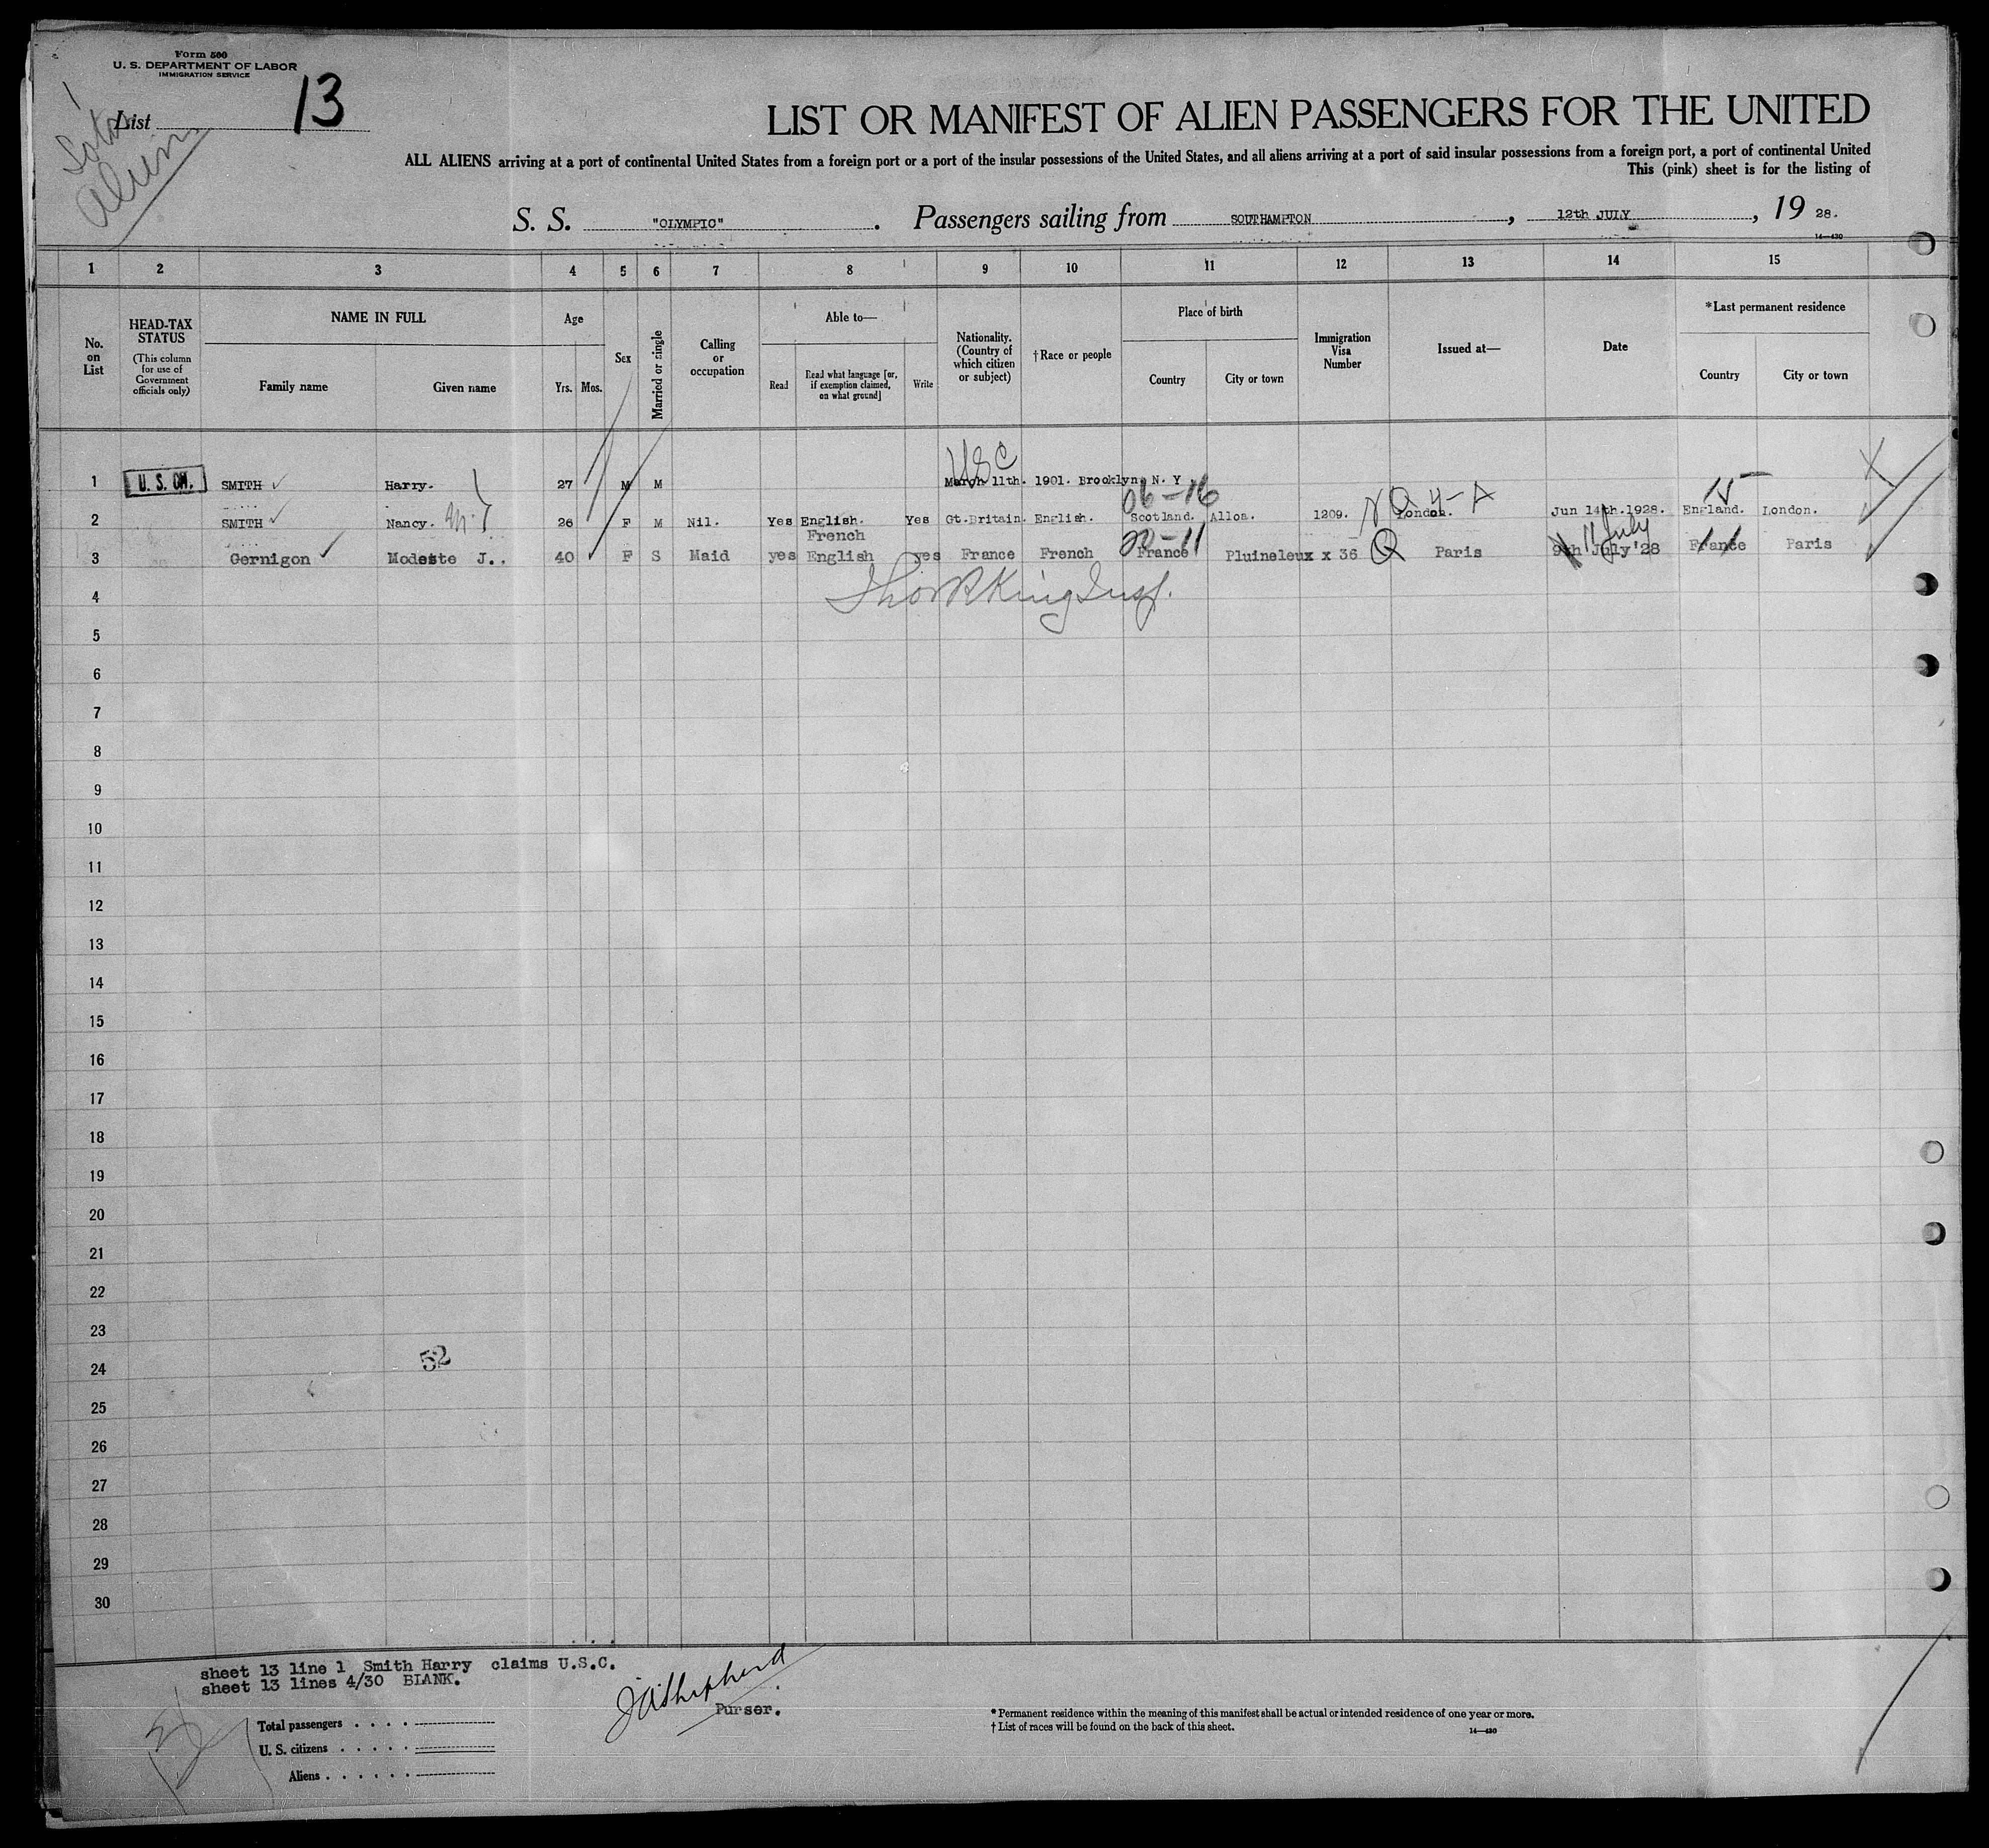 Form 500
U. S. DEPARTMENT OF LABOR
IMMIGRATION SERVICE
List 13
LIST OR MANIFEST OF ALIEN PASSENGERS FOR THE UNITED
ALL ALIENS arriving at a port of continental United States from a foreign port or a port of the insular possessions of the United States, and all aliens arriving at a port of said insular possessions from a foreign port, a port of continental United
This (pink) sheet is for the listing of
S. S. "OLYMPIC". Passengers sailing from SOUTHAMPTON, 12th JULY, 19 28.
14—430
1 2 3 4 5 6 7 8 9 10 11 12 13 14 15
No. on List
HEAD-TAX STATUS
(This column for use of Government officials only)
NAME IN FULL
Family name Given name
Age
Yrs. Mos.
Sex
Married or single
Calling or occupation
Able to—
Read Read what language [or, if exemption claimed, on what ground] Write
Nationality. (Country of which citizen or subject)
†Race or people
Place of birth
Country City or town
Immigration Visa Number
Issued at—
Date
*Last permanent residence
Country City or town
USC
1 U. S. CIT. SMITH Harry. 27 M M March 11th. 1901. Brooklyn, N. Y.
06-16 N Q 4-A
2 SMITH Nancy. 26 F M Nil. Yes English. Yes Gt.Britain. English. Scotland. Alloa. 1209. London. Jun 14th.1928. England. London.
French 20-11 11 July
3 Gernigon Modeste J.. 40 F S Maid yes English yes France French France Pluineleux x 36 Q Paris 9th July '28 France Paris
4
5
6
7
8
9
10
11
12
13
14
15
16
17
18
19
20
21
22
23
24 52
25
26
27
28
29
30
sheet 13 line 1 Smith Harry claims U.S.C.
sheet 13 lines 4/30 BLANK.
J A Shepherd
Purser.
Total passengers . . . .
U. S. citizens . . . . .
Aliens . . . . . .
* Permanent residence within the meaning of this manifest shall be actual or intended residence of one year or more.
† List of races will be found on the back of this sheet.
14—430